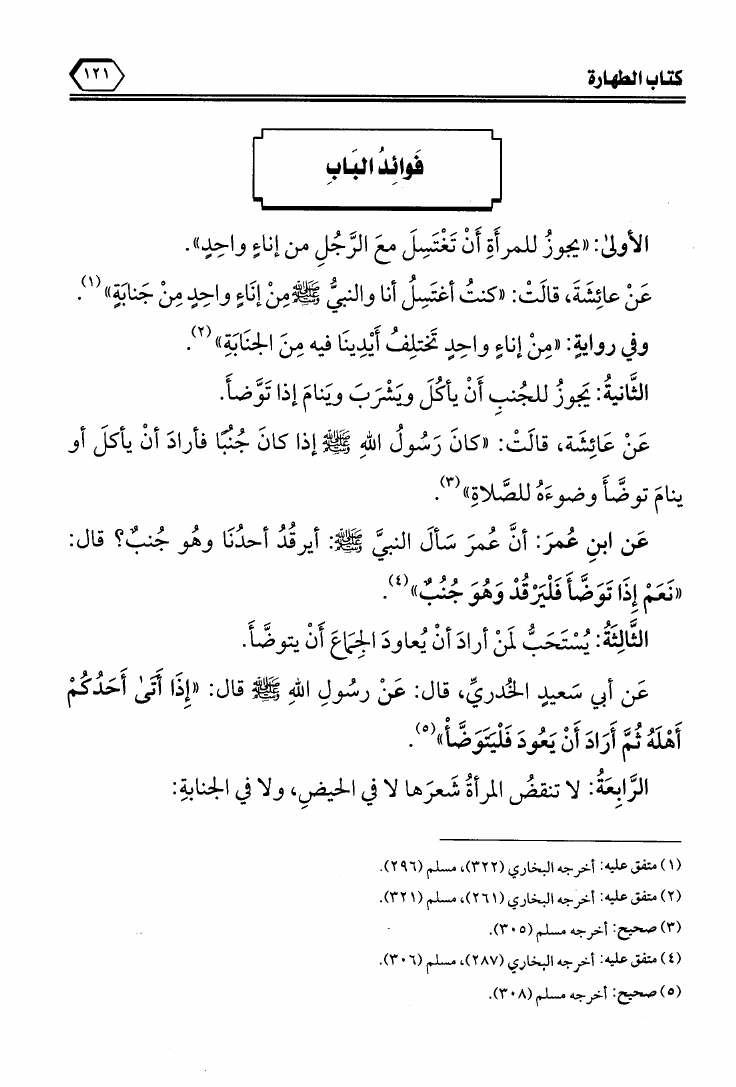 كتاب الطهارة
١٢١
فَوائِدُ البَابِ
الأولىٰ: «يجوزُ للمرأَةِ أَنْ تَغْتَسِلَ معَ الرَّجُلِ من إناءٍ واحِدٍ».
عَنْ عائِشَةَ، قالَتْ: «كنتُ أغتَسِلُ أنا والنبيُّ ﷺ مِنْ إِنَاءٍ واحِدٍ مِنْ جَنابَةٍ»(١).
وفي روايةٍ: «مِنْ إناءٍ واحِدٍ تَختلِفُ أَيْدِينَا فيه مِنَ الجَنَابَةِ»(٢).
الثَّانيةُ: يَجوزُ للجُنبِ أَنْ يأكُلَ ويَشْرَبَ ويَنامَ إذا تَوَّضأَ.
عَنْ عَائِشَة، قالَتْ: «كانَ رَسُولُ اللهِ ﷺ إذا كانَ جُنُبًا فأرادَ أنْ يأكلَ أو
ينامَ توضَّأَ وضوءَهُ للصَّلاةِ»(٣).
عَن ابنِ عُمرَ: أنَّ عُمرَ سَألَ النبيَّ ﷺ: أيرقُدُ أحدُنَا وهُو جُنبٌ؟ قال:
«نَعَمْ إِذَا تَوَضَّأَ فَلْيَرْقُدْ وَهُوَ جُنُبٌ»(٤).
الثَّالِثَةُ: يُسْتَحَبُّ لمَنْ أرادَ أنْ يُعاودَ الجِمَاعَ أَنْ يتوضَّأَ.
عَن أبي سَعيدٍ الخُدريِّ، قال: عَنْ رسُولِ اللهِ ﷺ قال: «إِذَا أَتَىٰ أَحَدُكُمْ
أَهْلَهُ ثُمَّ أَرَادَ أَنْ يَعُودَ فَلْيَتَوَضَّأْ»(٥).
الرَّابِعَةُ: لا تنقضُ المرأةُ شَعرَها لا في الحيضِ، ولا في الجنابةِ:
(١) متفق عليه: أخرجه البخاري (٣٢٢)، مسلم (٢٩٦).
(٢) متفق عليه: أخرجه البخاري (٢٦١)، مسلم (٣٢١).
(٣) صحيح: أخرجه مسلم (٣٠٥).
(٤) متفق عليه: أخرجه البخاري (٢٨٧)، مسلم (٣٠٦).
(٥) صحيح: أخرجه مسلم (٣٠٨).